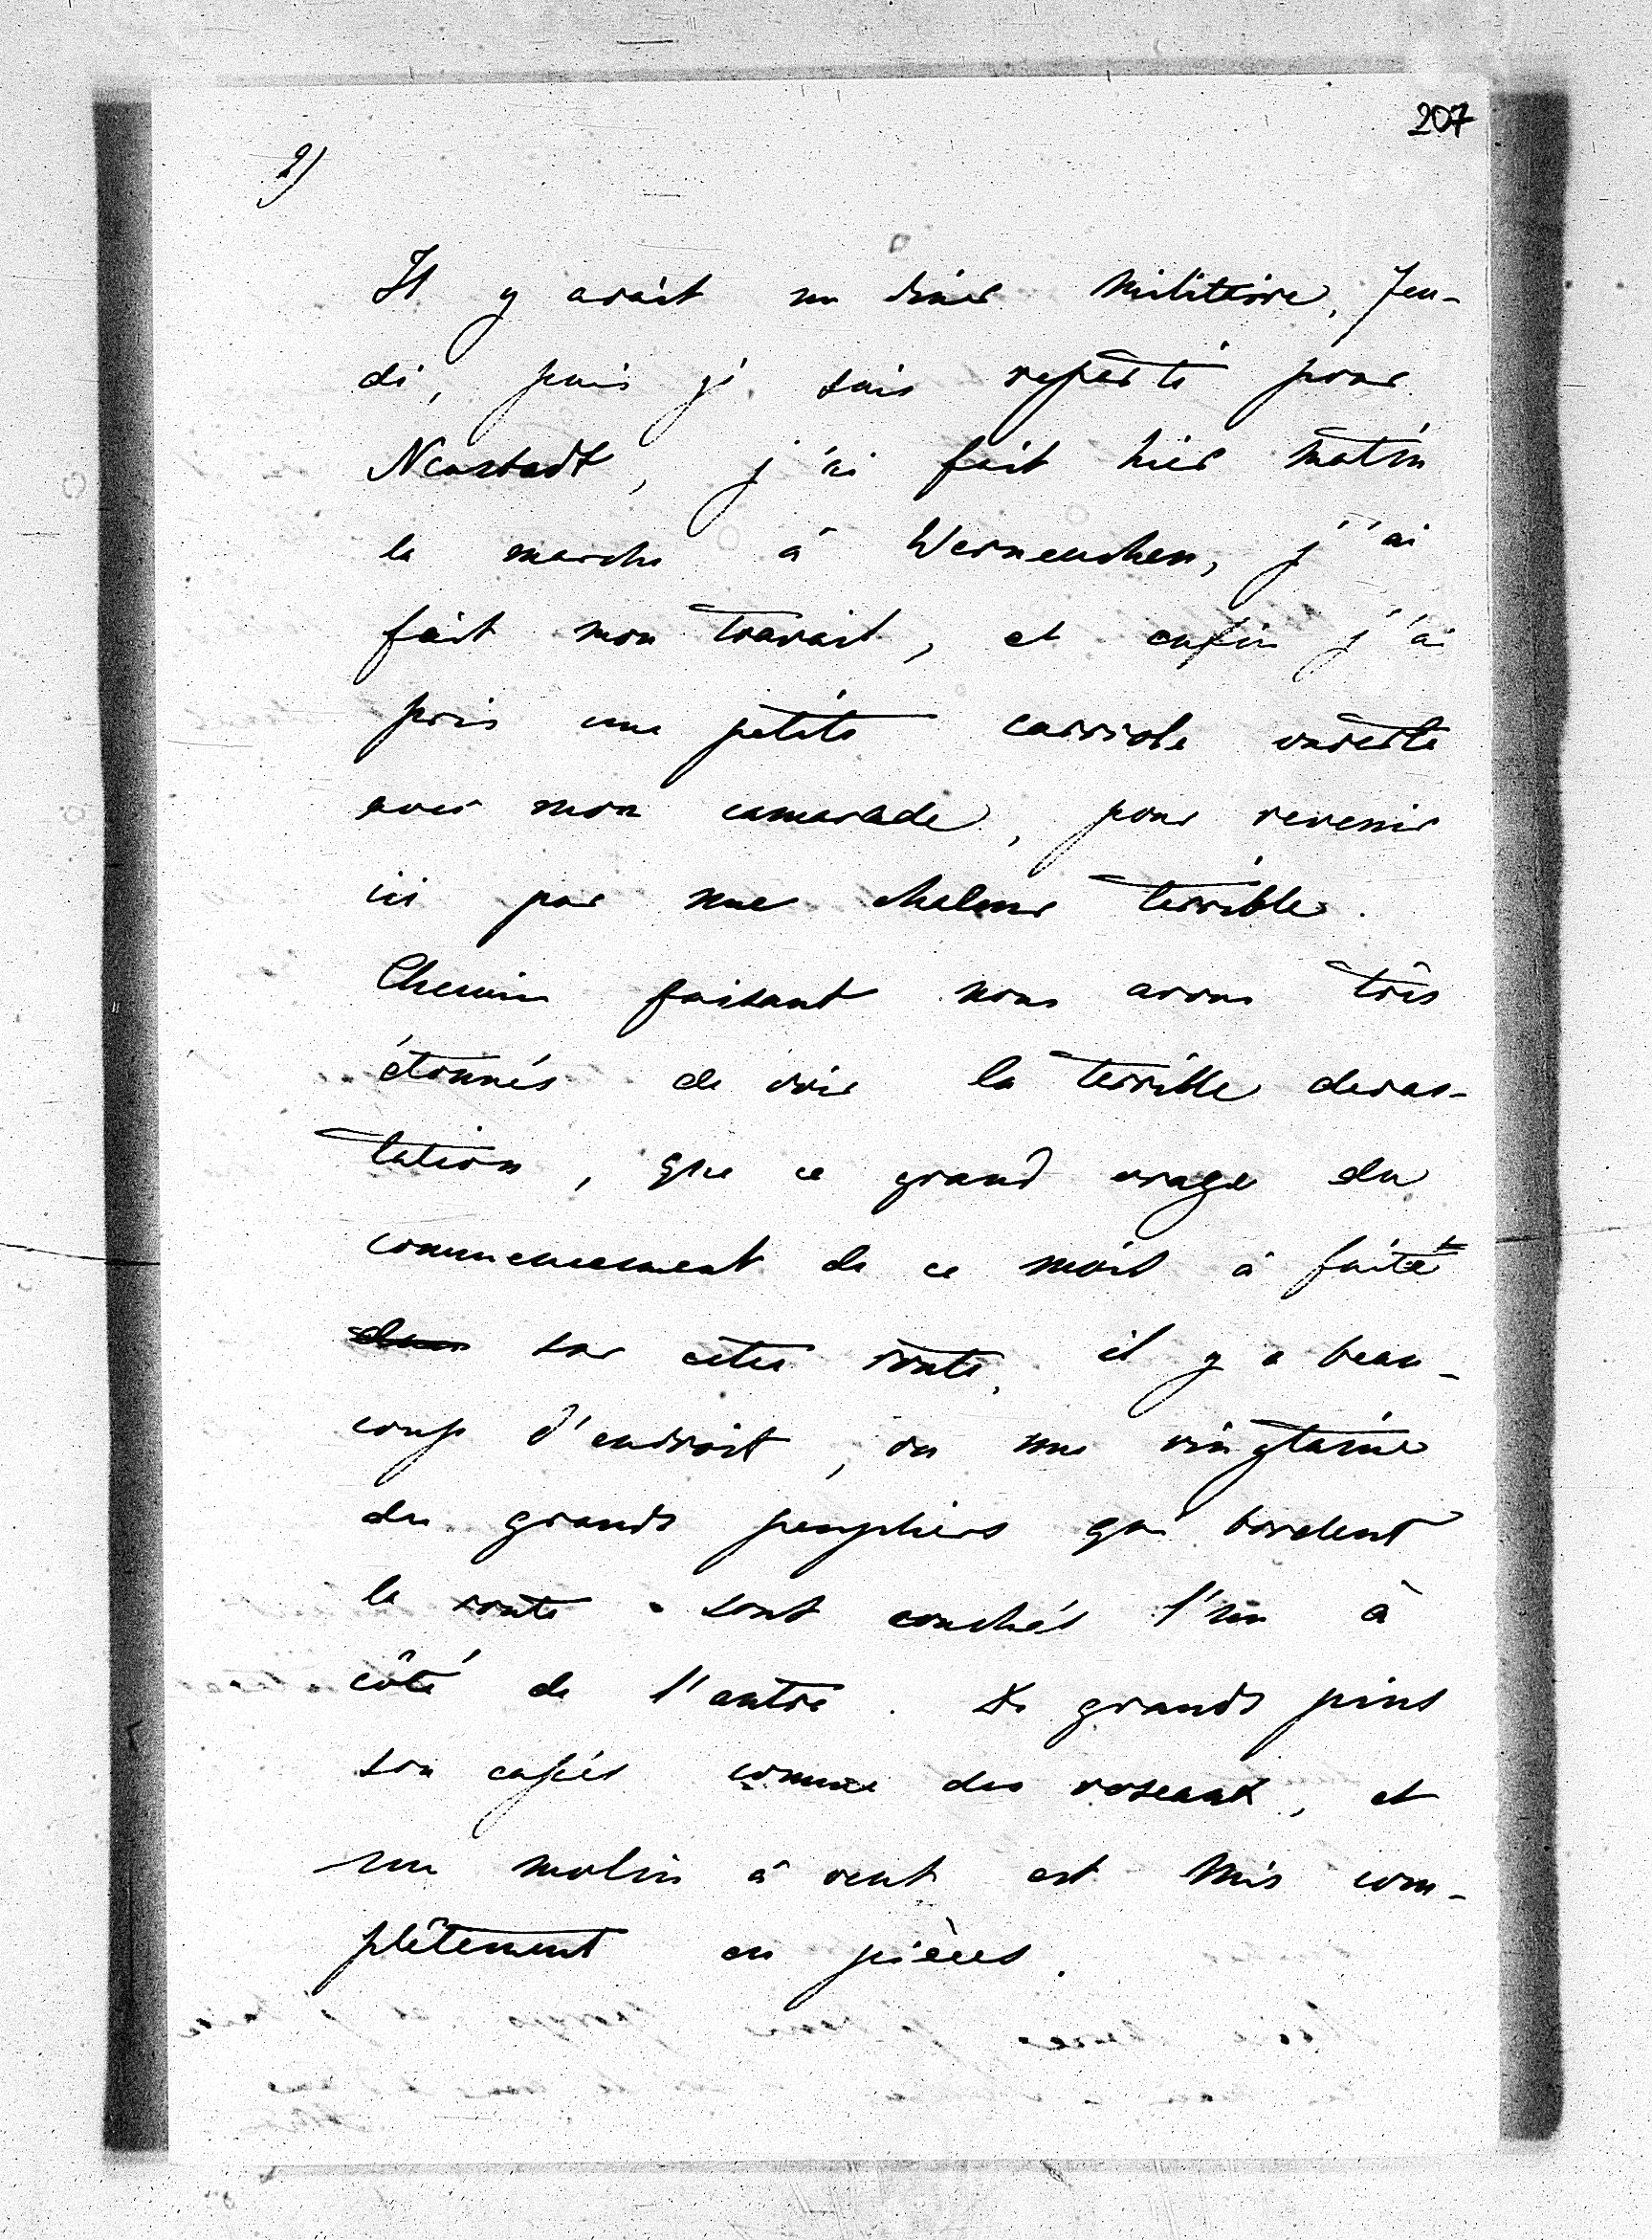 207
2)
Il y avait un diner militaire, Jeu-
di, puis je suis reparti pour
Neustadt, j'ai fait hier matin
la marche à Werneuchen, j'ai
fait mon travail, et enfin j'ai
pris une petite carriole ouverte
avec mon camarade, pour revenir
ici par une chaleur terrible.
Chemin faisant nous avons très
étonnés de voir la terrible devas-
tation, que ce grand orage du
commencement de ce mois à faite
sur cette route, il y a beau-
coup d'endroit, ou une vingtaine
du grands peupliers qui bordent
la route sont couchés l'un à
côté de l'autre. De grands pins
son cassés comme des roseaux, et
un molin à vent est mis com-
plêtement en pièces.